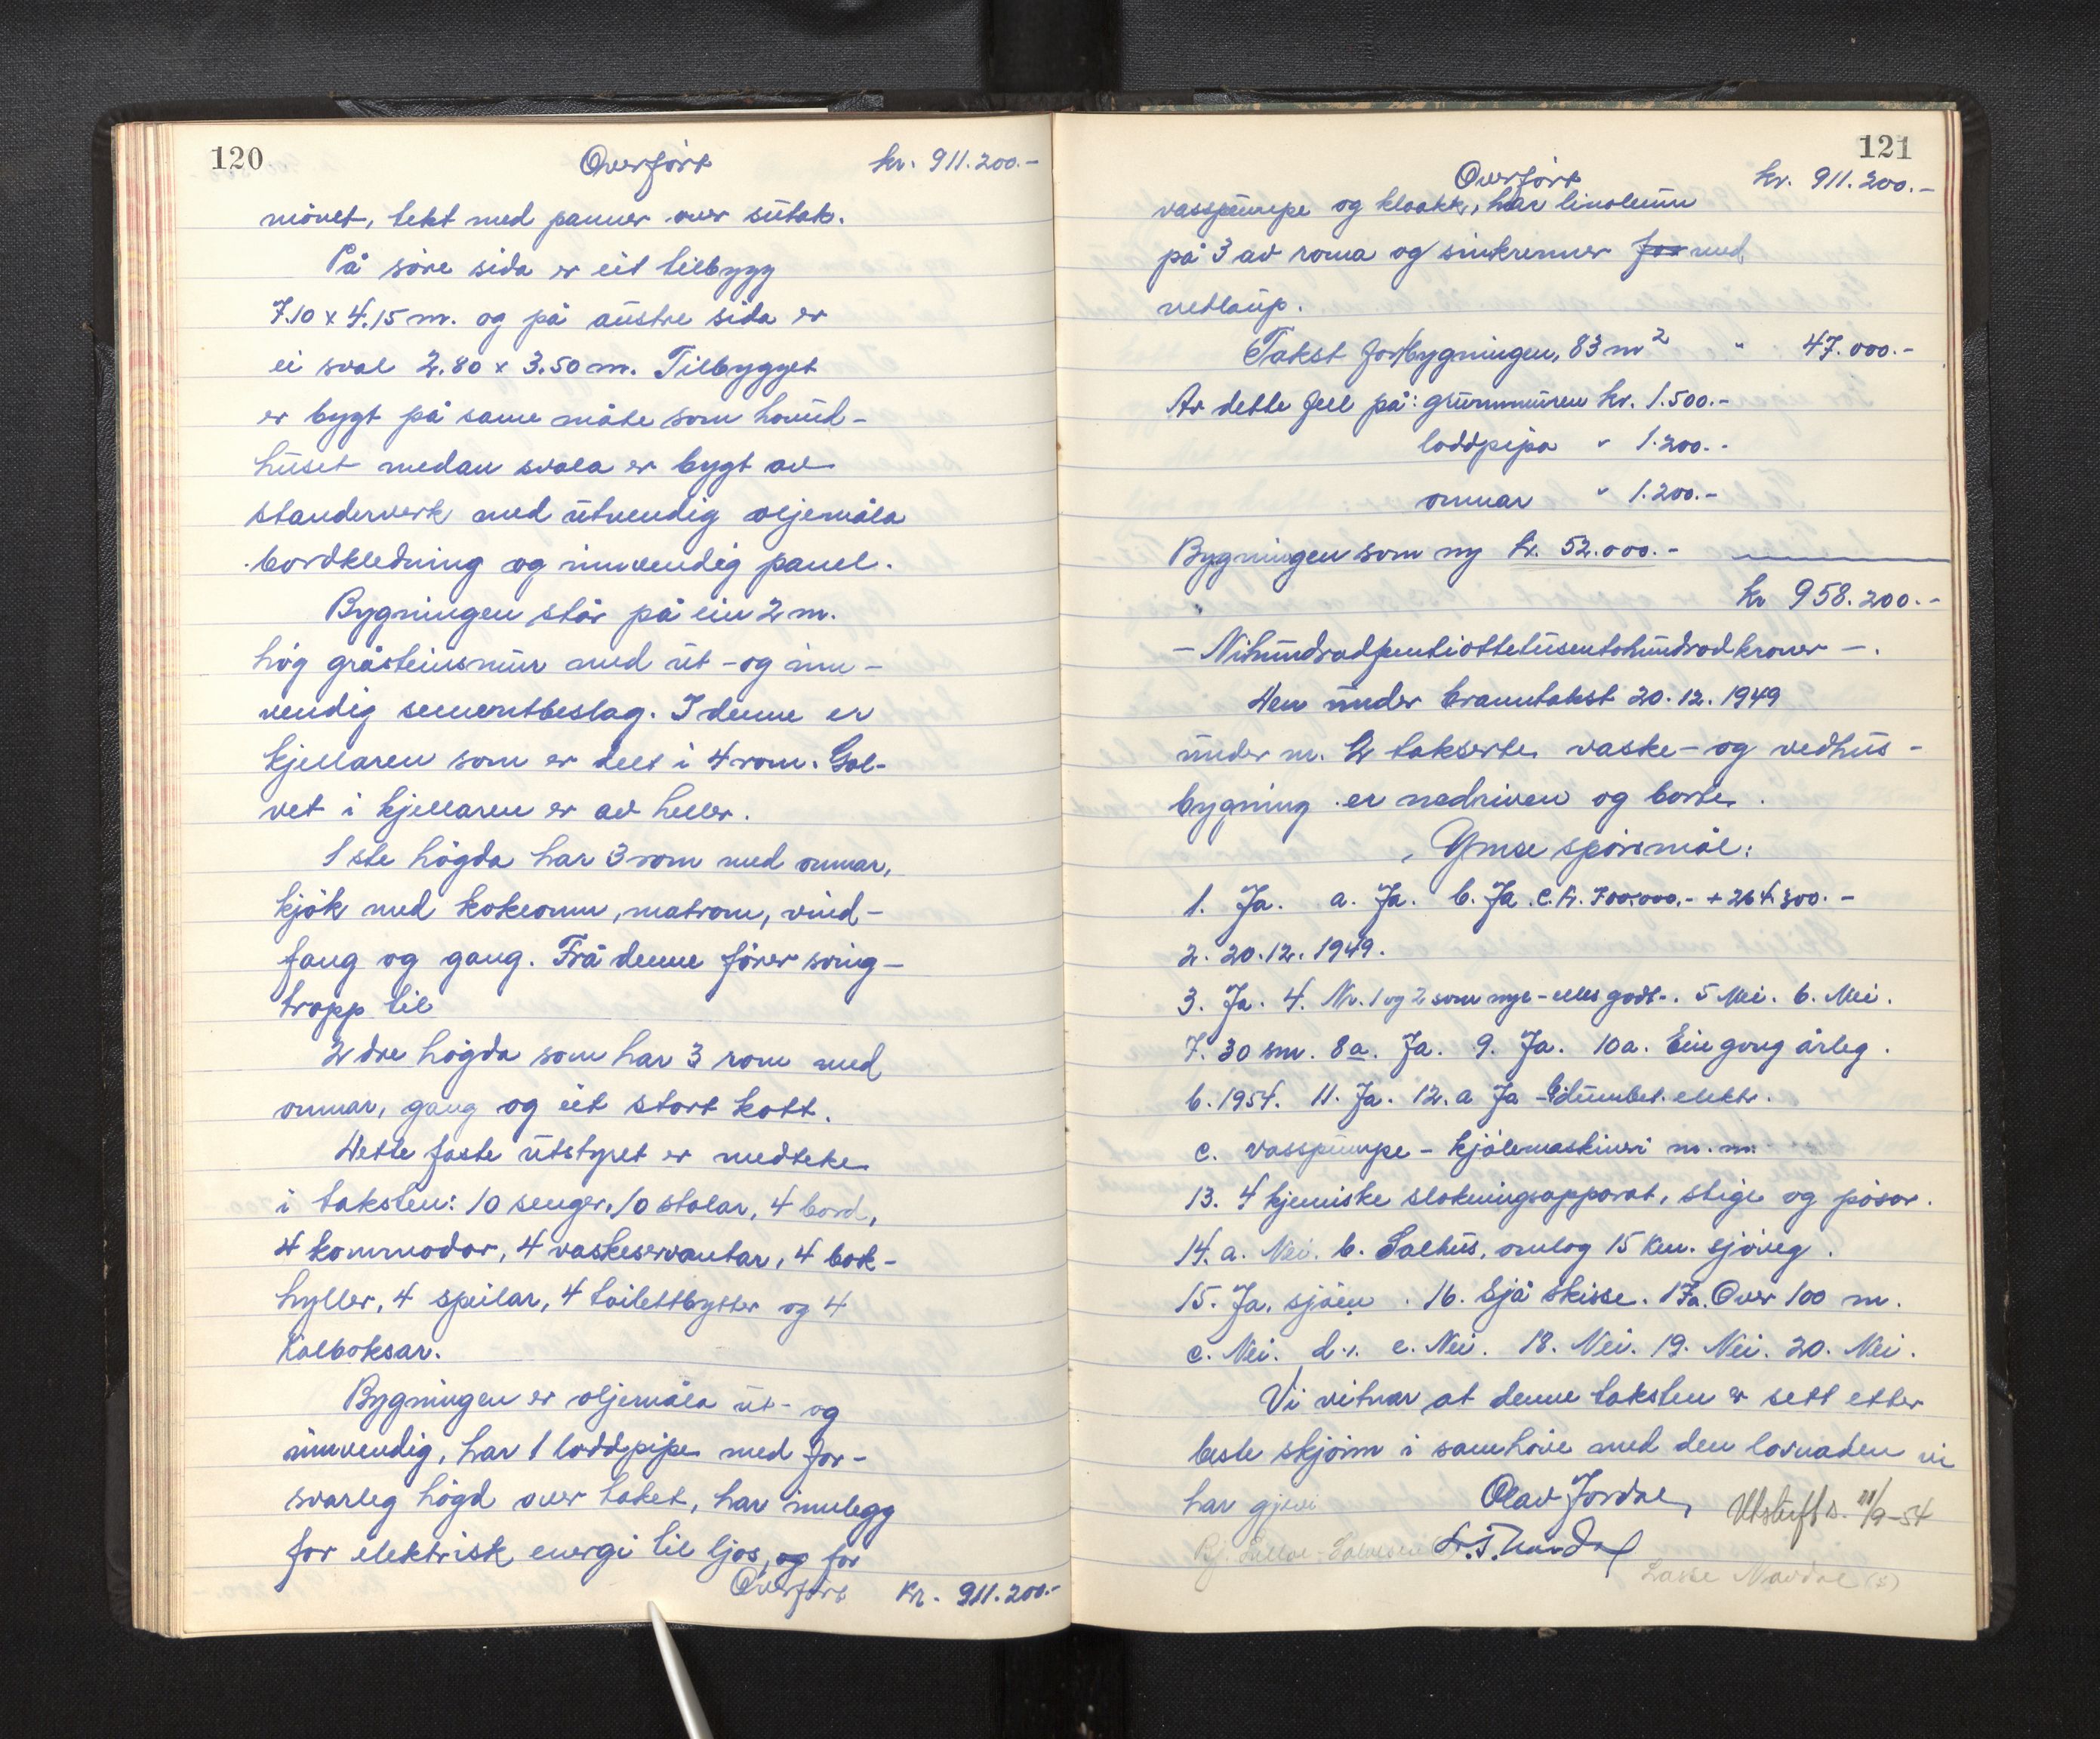 120
Overført kr. 911.200.-
mönet, tekt med panner over sutak.
På søre sida er eit tilbygg
7.10 x 4.15 m. og på austre sida er
ei sval 2.80 x 3.50 m. Tilbygget
er bygt på same måte som hovud-
huset medan svala er bygt av
standerverk med utvendig oljemåla
bordkledning og innvendig panel.
Bygningen står på ein 2 m.
høg gråsteinsmur med ut- og inn-
vendig sementbeslag. I denne er
kjellaren som er delt i 4 rom. Gol-
vet i kjellaren er av heller.
1ste högda har 3 rom med omnar,
kjøk med kokeomn, matrom, vind-
fang og gang. Frå denne fører sving-
tropp til
2dre högda som har 3 rom med
omnar, gang og eit stort kott.
Dette faste utstyret er medteke
i taksten: 10 senger, 10 stolar, 4 bord,
4 kommodor, 4 vaskeservantar, 4 bok-
hyller, 4 speilar, 4 toilettbytter og 4
Kolboksar.
Bygningen er oljemåla ut- og
innvendig, har 1 loddpipe med for-
svarleg högd over taket, har innlegg
for elektrisk energi til ljos, og for
Overført Kr. 911.200.-
121
Overført kr. 911.200.-
vasspumpe og kloakk, har linoleum
på 3 av roma og sinkrenner for med
nedlaup.
Takst for bygningen, 83 m2 " 47.000.-
Av dette fell på: grunnmuren kr. 1.500.-
loddpipa " 1.200.-
omnar " 1.200.-
Bygningen som ny kr. 52.000.-
kr 958.200.-
- Nihundradfemtiottetusentohundradkroner -.
Den under branntakst 20.12.1949
under nr. 2 takserte vaske- og vedhus-
bygning er nedriven og borte.
Ymse spørsmål:
1. Ja. a. Ja. b. Ja. c. kr. 700.000.- + 264.300.-
2. 20.12.1949.
3. Ja. 4. Nr. 1 og 2 som nye - elles godt -. 5 Nei. 6. Nei.
7. 30 sm. 8a. Ja. 9. Ja. 10a. Ein gong årleg.
b. 1954. 11. Ja. 12. a Ja - elektr.
c. vasspumpe - kjølemaskineri m. m.
13. 4 kjemiske slokningsapparat, stige og pøsar.
14. a. Nei. b. Salhus, omlag 15 Km. sjøveg.
15. Ja, sjøen. 16. Sjå skisse. 17a. Over 100 m.
c. Nei. d. ". e. Nei. 18. Nei. 19. Nei. 20. Nei.
Vi vitnar at denne taksten er sett etter
beste skjønn i samhøve med den lovnaden vi
har gjevi
Olav Jordal
Utskrift s. 21/9-54
Lasse Navdal (s)